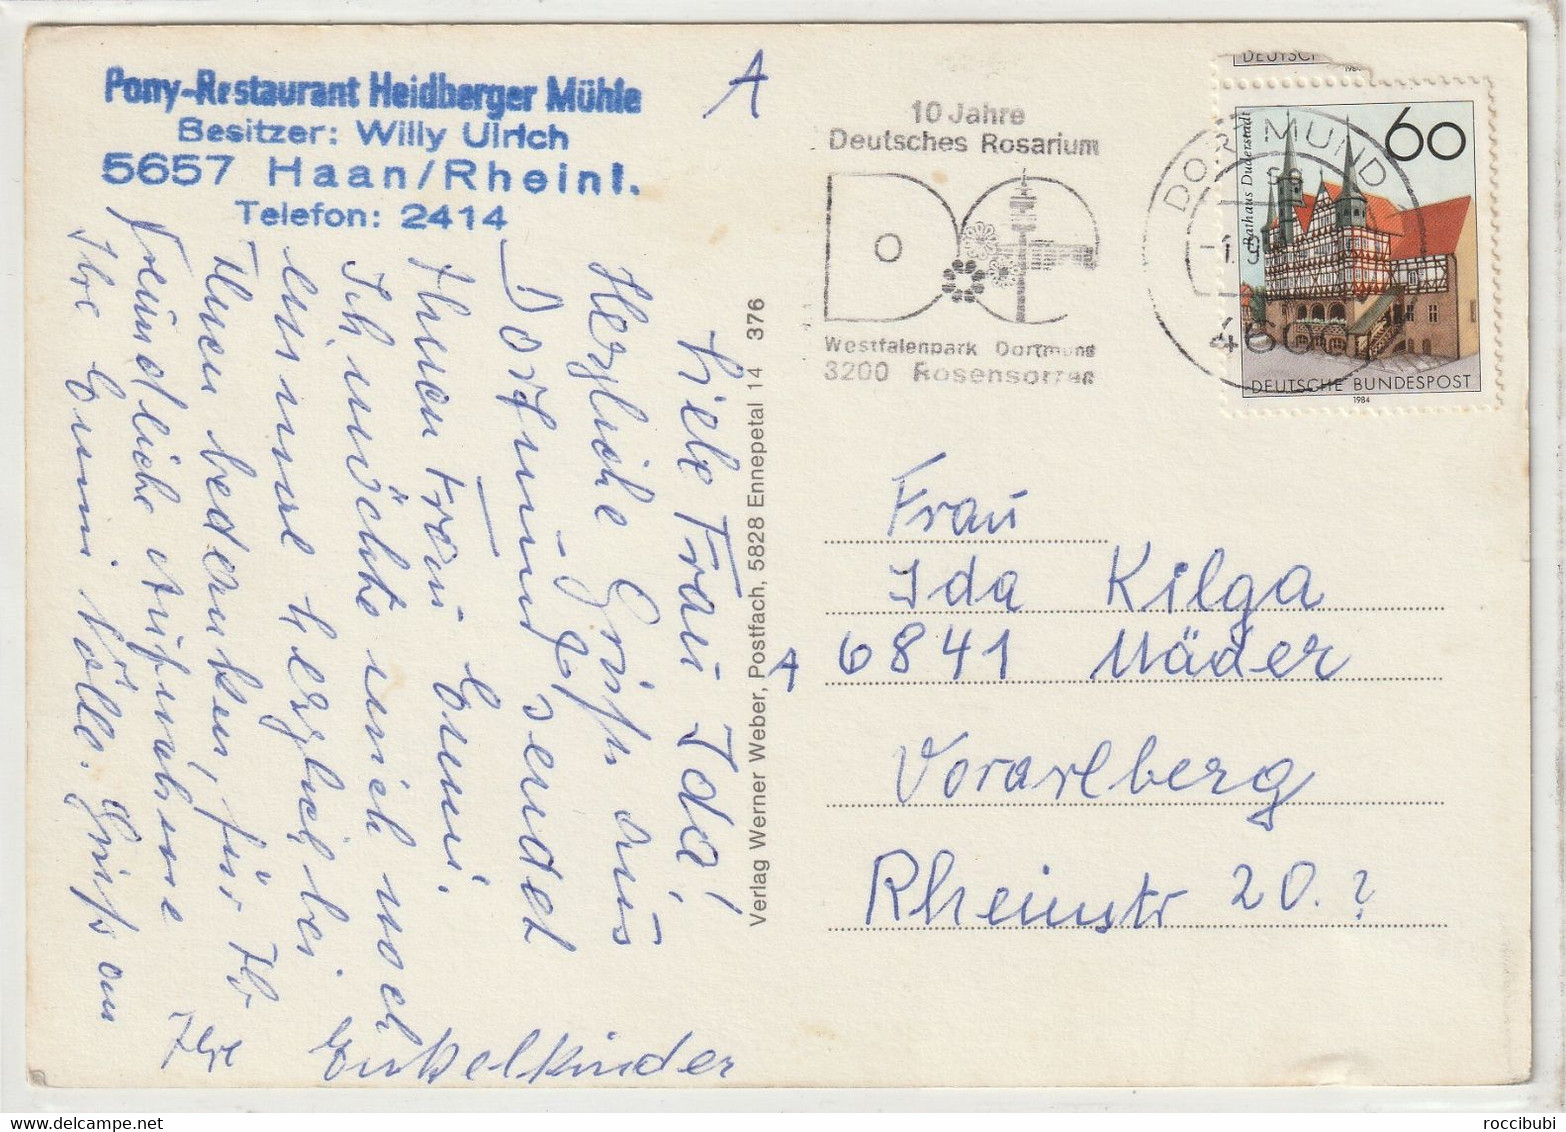 Pony-Restaurant Heidberger Mühle
Besitzer: Willy Ulrich
5657 Haan/Rheinl.
Telefon: 2414
A
10 Jahre
Deutsches Rosarium
DO
Westfalenpark Dortmund
3200 Rosensorten
DORTMUND
4600
DEUTSCH
60
Rathaus Duderstadt
DEUTSCHE BUNDESPOST
1984
Liebe Frau Ida!
Herzliche Grüße aus
Dortmund sendet
Ihnen Frau Emmi.
Ich möchte mich noch
einmal herzlich bei
Ihnen bedanken, für Ihr
freundliche Aufnahme
Ihre Emmi Nölle. Grüße an
Ihre Enkelkinder
Verlag Werner Weber, Postfach, 5828 Ennepetal 14 376
Frau
Ida Kilga
A 6841 Mäder
Vorarlberg
Rheinstr 20.?
roccibubi